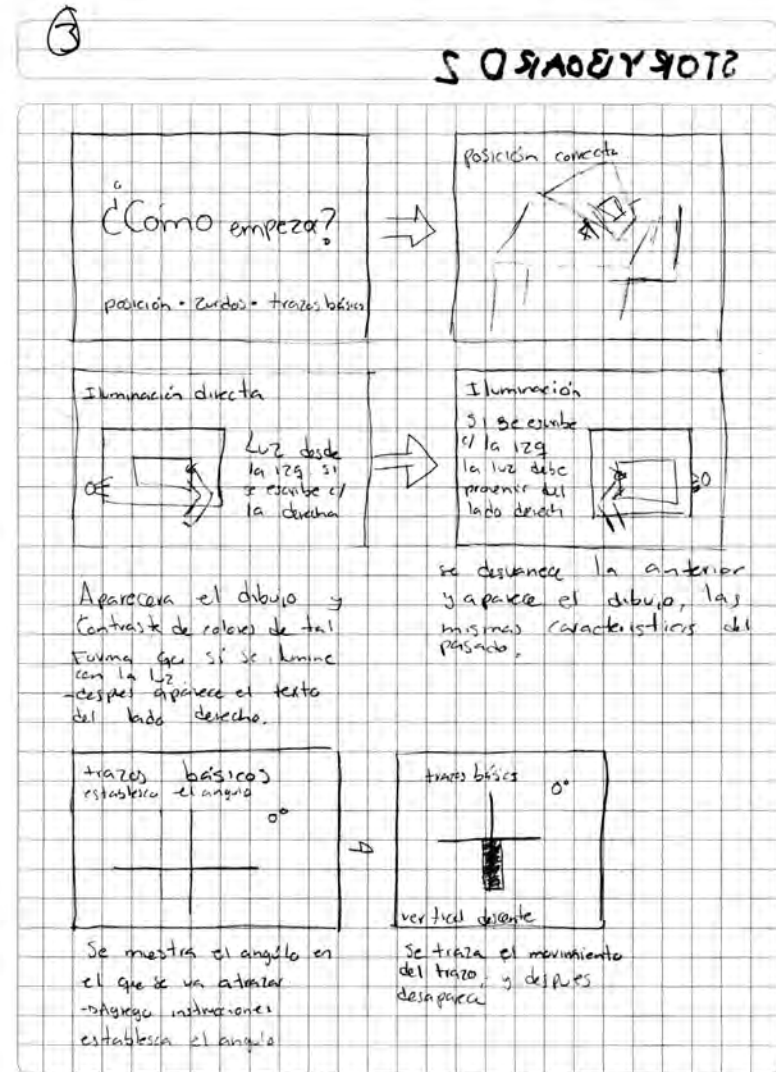 3
STORYBOARD 2
¿Cómo empeza?
posición · zurdos · trazos básicos
posición correcta
Iluminación directa
Luz desde
la izq. si
se escribe c/
la derecha
Iluminación
Si se escribe
c/ la izq
la luz debe
provenir del
lado derech
Aparecera el dibujo y
Contraste de colores de tal
Forma que si se ilumine
con la luz
-despues aparece el texto
del lado derecho.
se desvanece la anterior
y aparece el dibujo, las
mismas caracteristicas del
pasado.
trazos básicos
establesca el angulo
0°
trazos básicos
0°
vertical
Se mestra el angúlo en
el que se va a trazar
Agrega instrucciones
establesca el angulo
Se traza el movimiento
del trazo, y despues
desaparece